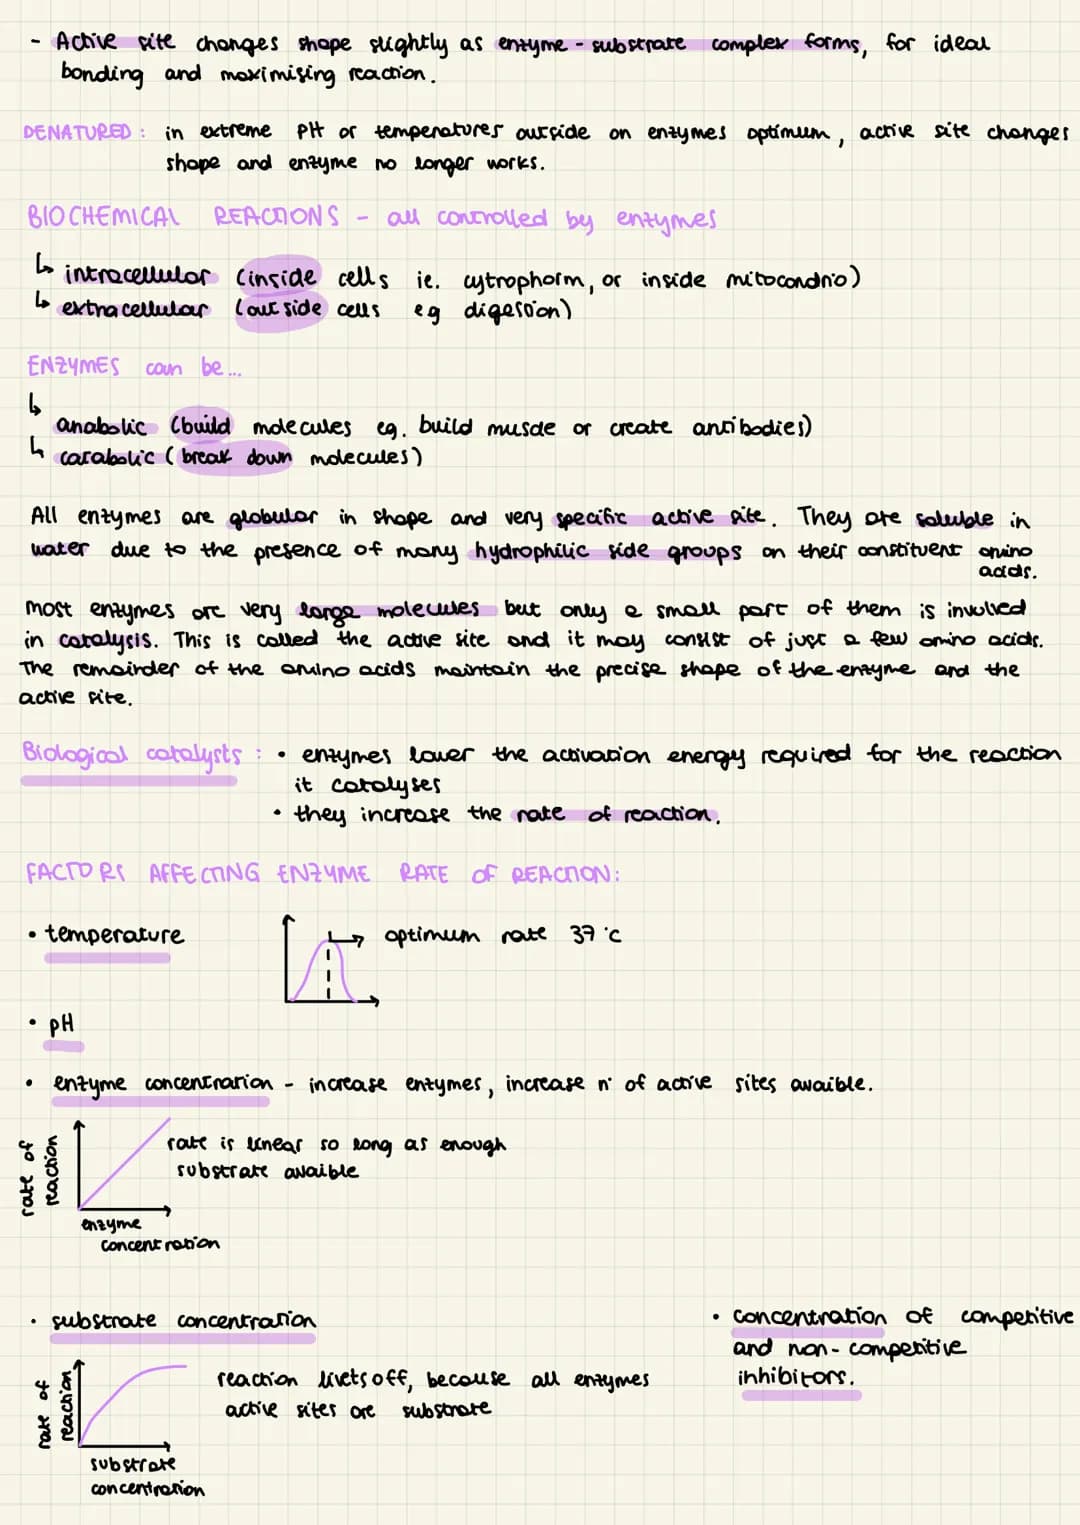 - Active site changes shape slightly as enzyme - substrate complex forms, for ideal
bonding and maximising reaction.
DENATURED : in extreme PH or temperatures outside on enzymes optimum, active site changes
shape and enzyme no longer works.
BIOCHEMICAL REACTIONS - all controlled by enzymes
↳ intracellular (inside cells ie. cytrophorm, or inside mitocondrio)
↳ extracellular (outside cells eg digestion)
ENZYMES can be...
↳ anabolic (build molecules eg. build muscle or create antibodies)
↳ catabolic (break down molecules)
All enzymes are globular in shape and very specific active site. They are soluble in
water due to the presence of many hydrophilic side groups on their constituent amino
acids.
most enzymes are very large molecules but only a small part of them is involved
in catalysis. This is called the active site and it may consist of just a few amino acids.
The remainder of the amino acids maintain the precise shape of the enzyme and the
active site.
Biological catalysts : • enzymes lower the activation energy required for the reaction
it catalyses
• they increase the rate of reaction.
FACTORS AFFECTING ENZYME RATE OF REACTION:
• temperature
optimum rate 37 °C
• pH
• enzyme concentration - increase enzymes, increase n° of active sites avaible.
rate of
reaction
rate is linear so long as enough
substrate avaible
enzyme
concentration
• substrate concentration
rate of
reaction
reaction livets off, because all enzymes
active sites are substrate
substrate
concentration
• concentration of competitive
and non-competitive
inhibitors.